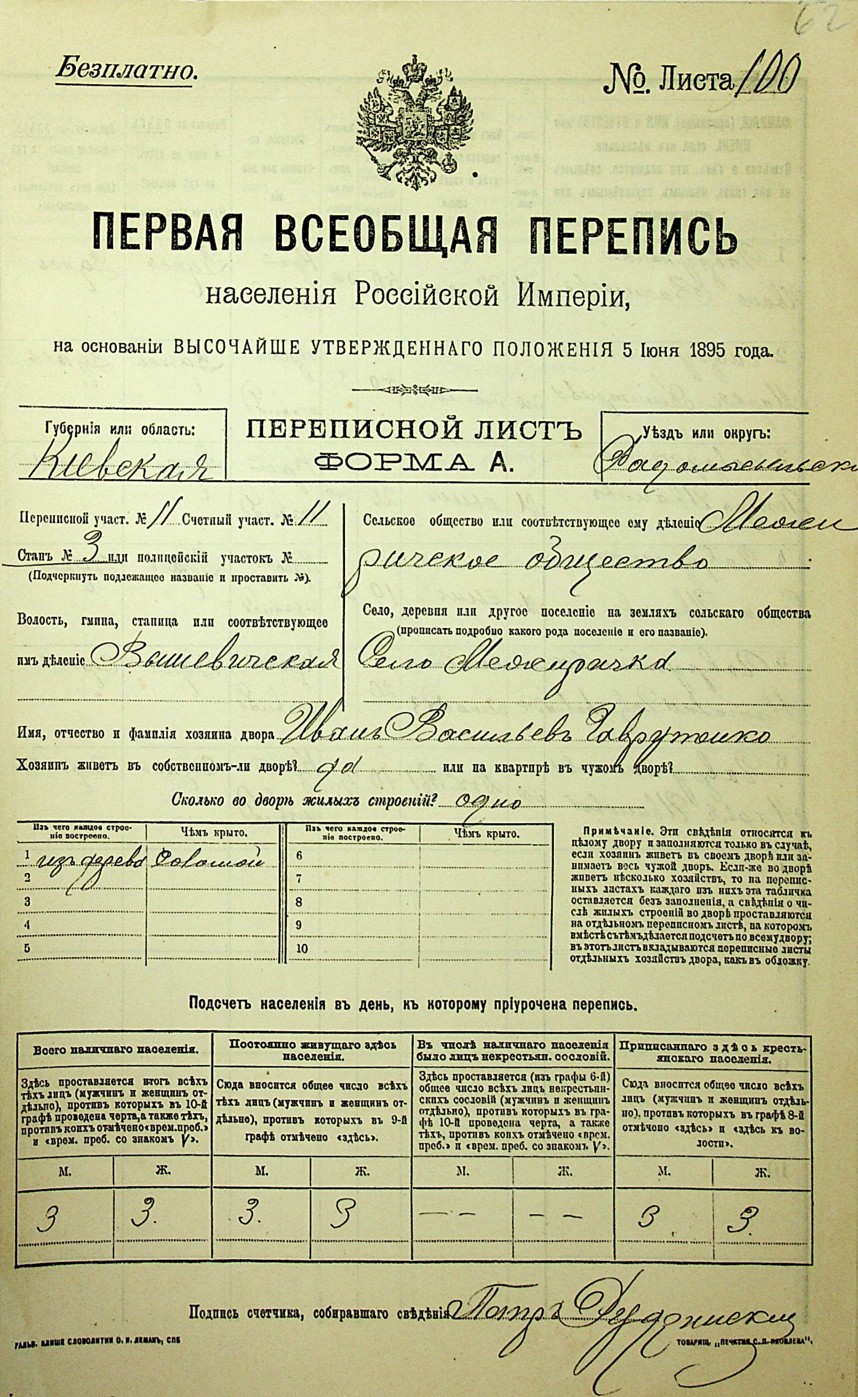 62
Безплатно.
№. Листа 100
ПЕРВАЯ ВСЕОБЩАЯ ПЕРЕПИСЬ
населенія Россійской Имперіи,
на основаніи ВЫСОЧАЙШЕ УТВЕРЖДЕННАГО ПОЛОЖЕНІЯ 5 Іюня 1895 года.
Губернія или область:
Кіевская
ПЕРЕПИСНОЙ ЛИСТЪ
ФОРМА А.
Уѣздъ или округъ:
Переписной участ. № 11 Счетный участ. № 11
Станъ № 3 или полицейскій участокъ №
(Подчеркнуть подлежащее названіе и проставить №).
Волость, гмина, станица или соотвѣтствующее
имъ дѣленіе Вышевичская
Сельское общество или соотвѣтствующее ему дѣленіе Межи
ричское общество
Село, деревня или другое поселеніе на земляхъ сельскаго общества
(прописать подробно какого рода поселеніе и его названіе).
Село Межиричка
Имя, отчество и фамилія хозяина двора Иванъ Васильевъ
Хозяинъ живетъ въ собственномъ-ли дворѣ? да или на квартирѣ въ чужомъ дворѣ?
Сколько во дворѣ жилыхъ строеній? одно
Изъ чего каждое строеніе построено.
Чѣмъ крыто.
1 изъ дерева Соломой
2
3
4
5
Изъ чего каждое строеніе построено.
Чѣмъ крыто.
6
7
8
9
10
Примѣчаніе. Эти свѣдѣнія относятся къ
цѣлому двору и заполняются только въ случаѣ,
если хозяинъ живетъ въ своемъ дворѣ или за-
нимаетъ весь чужой дворъ. Если-же во дворѣ
живетъ нѣсколько хозяйствъ, то на перепис-
ныхъ листахъ каждаго изъ нихъ эта табличка
оставляется безъ заполненія, а свѣдѣнія о чи-
слѣ жилыхъ строеній во дворѣ проставляются
на отдѣльномъ переписномъ листѣ, на которомъ
вмѣстѣ съ тѣмъ дѣлается подсчетъ по всему двору;
въ этотъ листъ вкладываются переписные листы
отдѣльныхъ хозяйствъ двора, какъ въ обложку.
Подсчетъ населенія въ день, къ которому пріурочена перепись.
Всего наличнаго населенія.
Здѣсь проставляется итогъ всѣхъ
тѣхъ лицъ (мужчинъ и женщинъ от-
дѣльно), противъ которыхъ въ 10-й
графѣ проведена черта, а также тѣхъ,
противъ коихъ отмѣчено «врем. преб.»
и «врем. преб. со знакомъ V».
М. Ж.
3 3.
Постоянно живущаго здѣсь
населенія.
Сюда вносится общее число всѣхъ
тѣхъ лицъ (мужчинъ и женщинъ от-
дѣльно), противъ которыхъ въ 9-й
графѣ отмѣчено «здѣсь».
М. Ж.
3. 3
Въ числѣ наличнаго населенія
было лицъ некрестьян. сословій.
Здѣсь проставляется (изъ графы 6-й)
общее число всѣхъ лицъ некрестьян-
скихъ сословій (мужчинъ и женщинъ
отдѣльно), противъ которыхъ въ гра-
фѣ 10-й проведена черта, а также
тѣхъ, противъ коихъ отмѣчено «врем.
преб.» и «врем. преб. со знакомъ V».
М. Ж.
— — — —
Приписаннаго здѣсь кресть-
янскаго населенія.
Сюда вносится общее число всѣхъ
лицъ (мужчинъ и женщинъ отдѣль-
но), противъ которыхъ въ графѣ 8-й
отмѣчено «здѣсь» и «здѣсь къ во-
лости».
М. Ж.
3 3.
Подпись счетчика, собиравшаго свѣдѣнія
ГАЛЬВ. КЛИШЕ СЛОВОЛИТНИ О. И. ЛЕМАНЪ, СПБ
ТОВАРИЩ. „ПЕЧАТНЯ С. П. ЯКОВЛЕВА".